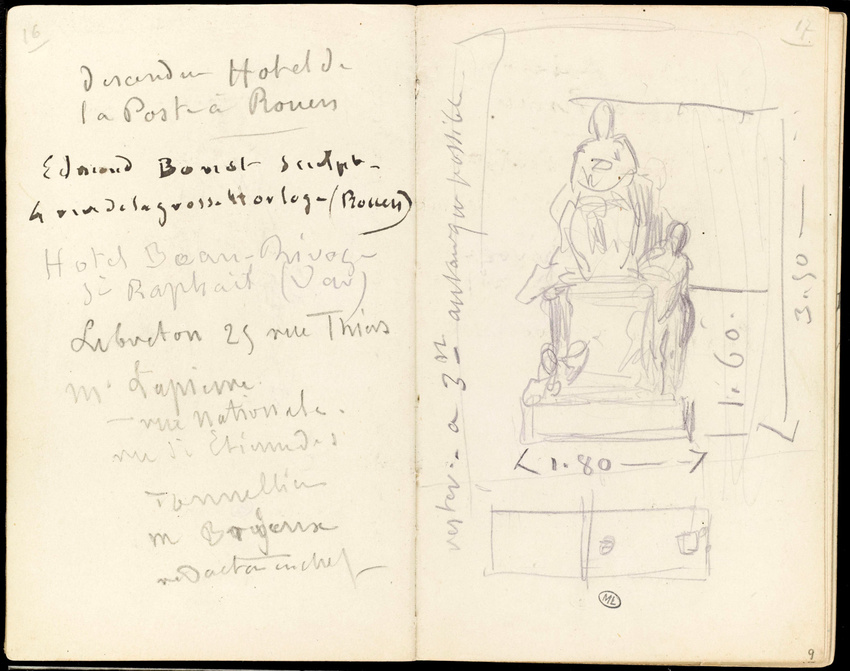 16
descendu Hotel de
la Poste à Rouen
Edmond Bonet Sculpt-
4 rue de la grosse Horloge (Rouen)
Hotel Beau-Rivage
St Raphaël (Var)
Lebreton 25 rue Thiers
Mr Lapierre
rue nationale.
rue St Etienne des
Tonnelliers
m
redacteur en chef
17
rester a 3m autant que possible
3.50
1.60.
1.80
ML
9